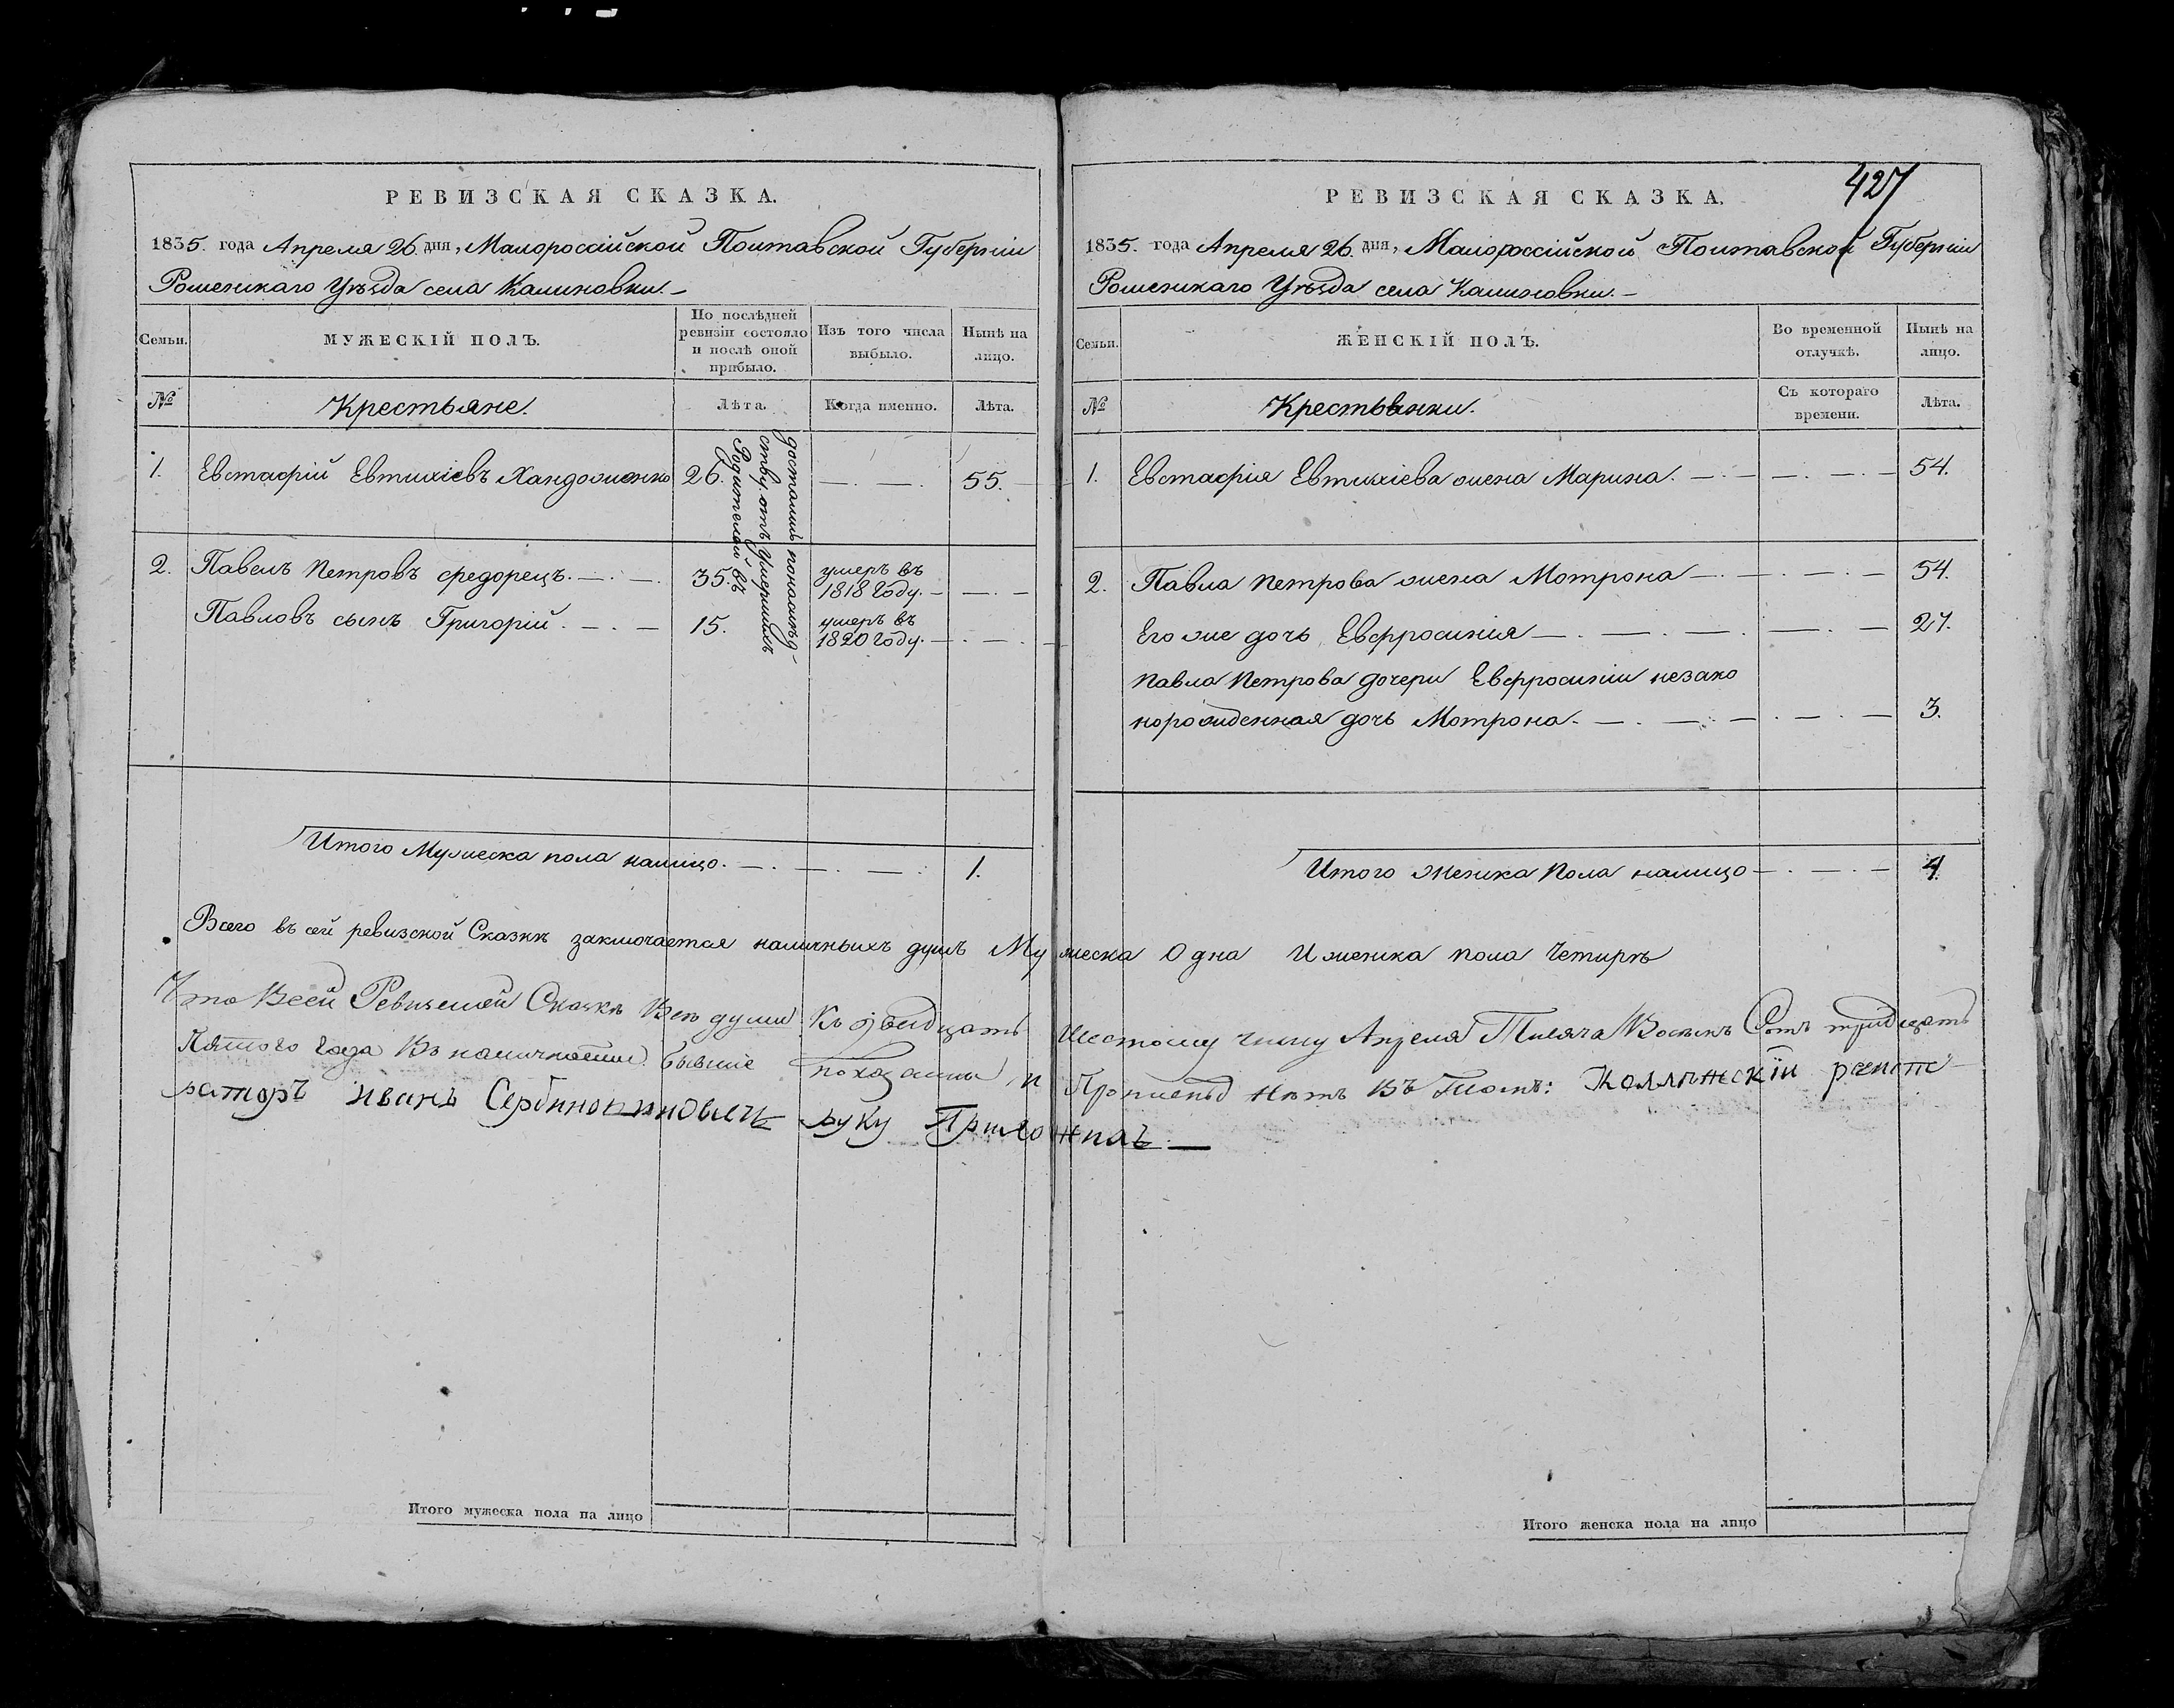 427
РЕВИЗСКАЯ СКАЗКА.
1835. года Апреля 26. дня, Малороссійской Полтавской Губерніи
Роменскаго Уѣзда села Калиновки.
Семьи.
МУЖЕСКІЙ ПОЛЪ.
По послѣдней ревизіи состояло и послѣ оной прибыло.
Изъ того числа выбыло.
Нынѣ на лицо.
№
Крестьяне.
Лѣта.
Когда именно.
Лѣта.
достались по наслѣд-
ству отъ умершихъ
Родителей въ
1. Евстафій Евтихіевъ Хандоженко 26. — . — . 55.
2. Павелъ Петровъ Федорецъ. — . — . 35. умеръ въ 1818 году. — — . —
Павловъ сынъ Григорій . — . — 15. умеръ въ 1820 году. — . — . —
Итого Мужеска пола налицо . — . — . — . 1.
РЕВИЗСКАЯ СКАЗКА.
1835. года Апреля 26. дня, Малороссійской Полтавской Губерніи
Роменскаго Уѣзда села Калиновки. —
Семьи.
ЖЕНСКІЙ ПОЛЪ.
Во временной отлучкѣ.
Нынѣ на лицо.
№
Крестьянки.
Съ котораго времени.
Лѣта.
1. Евстафія Евтихіева жена Марина. — . — — . — . — 54.
2. Павла Петрова жена Мотрона — . — . — . — 54.
Его же дочь Евфросинія — . — . — . — . — . — 27.
Павла Петрова дочери Евфросиніи незако
норожденная дочь Мотрона. — . — . — . — . — 3.
Итого женска Пола налицо — . — . — 4.
Всего въ сей ревизской Сказкѣ заключается наличныхъ душъ Мужеска Одна И женска пола Четыре
Что Всей Ревизской Сказкѣ Всѣ души Къ двадцать Шестому числу Апреля Тисяча Восемъ Сотъ тридцать
Пятого Года Въ наличности бывшие показанны и Прописныхъ нѣтъ Въ Томъ: регист-
раторъ Иванъ руку Приложилъ —
Итого мужеска пола на лицо
Итого женска пола на лицо